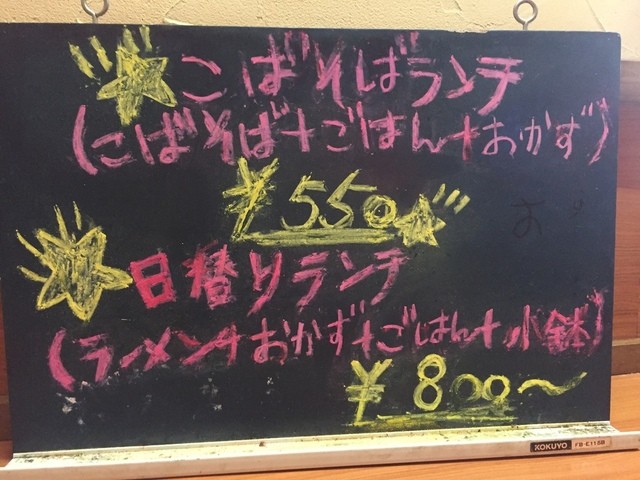 こばそばランチ
(こばそば+ごはん+おかず)
¥550
日替りランチ
(ラーメン+おかず+ごはん+小鉢)
¥800〜
KOKUYO FB-E115B